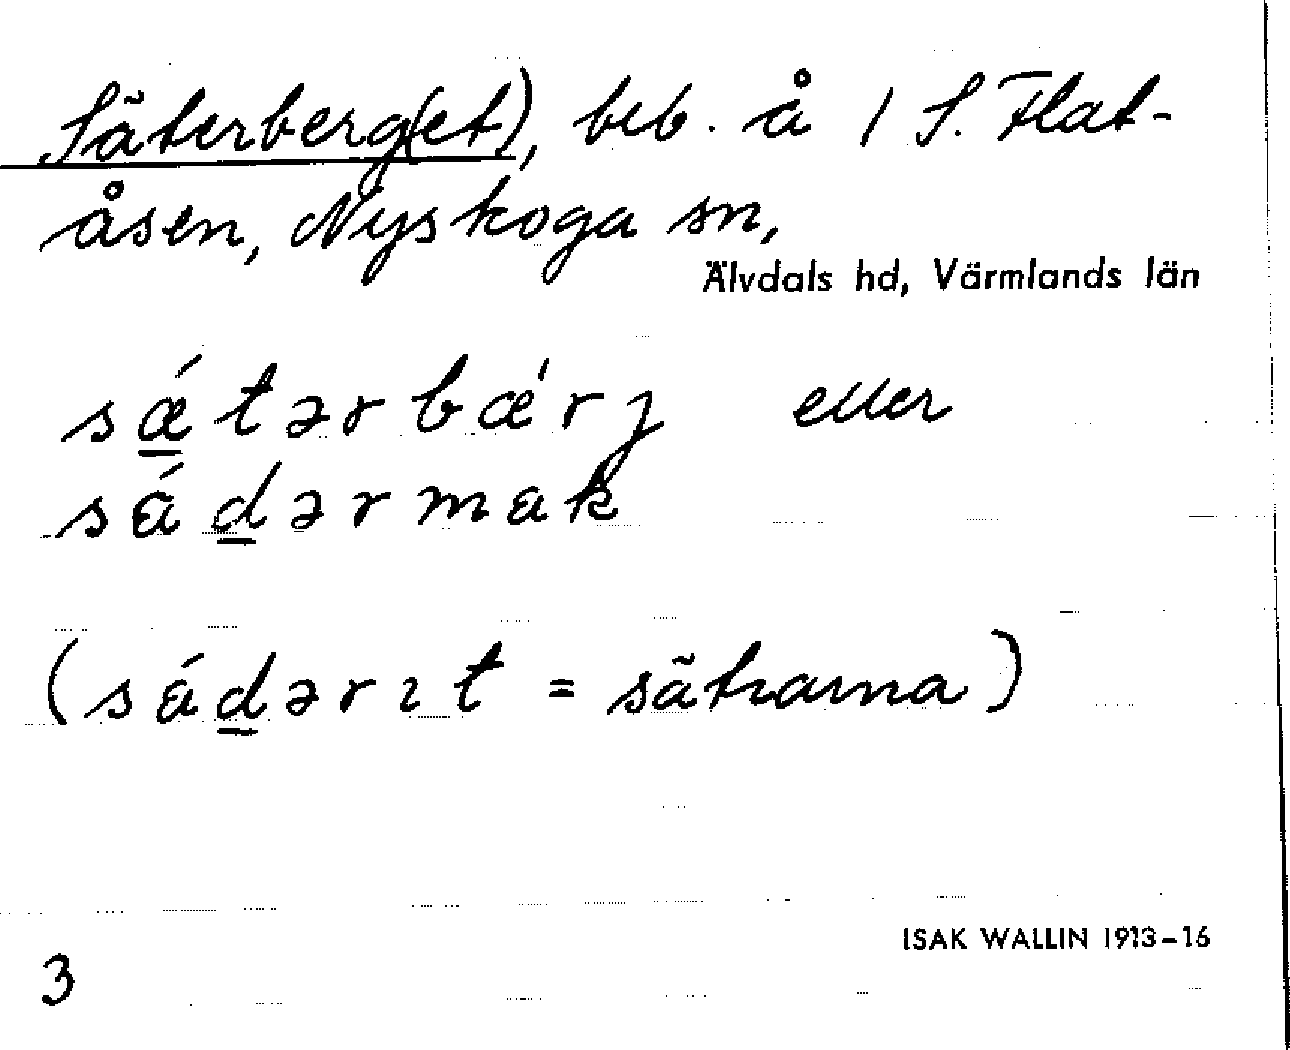 Säterberg(et), beb. å 1 S. Flat-
åsen, Nyskoga sn,
Älvdals hd, Värmlands län
sǽ̱tərbǽrj eller
sáḏərmak
(sáḏərıt = sätrarna)
ISAK WALLIN 1913-16
3